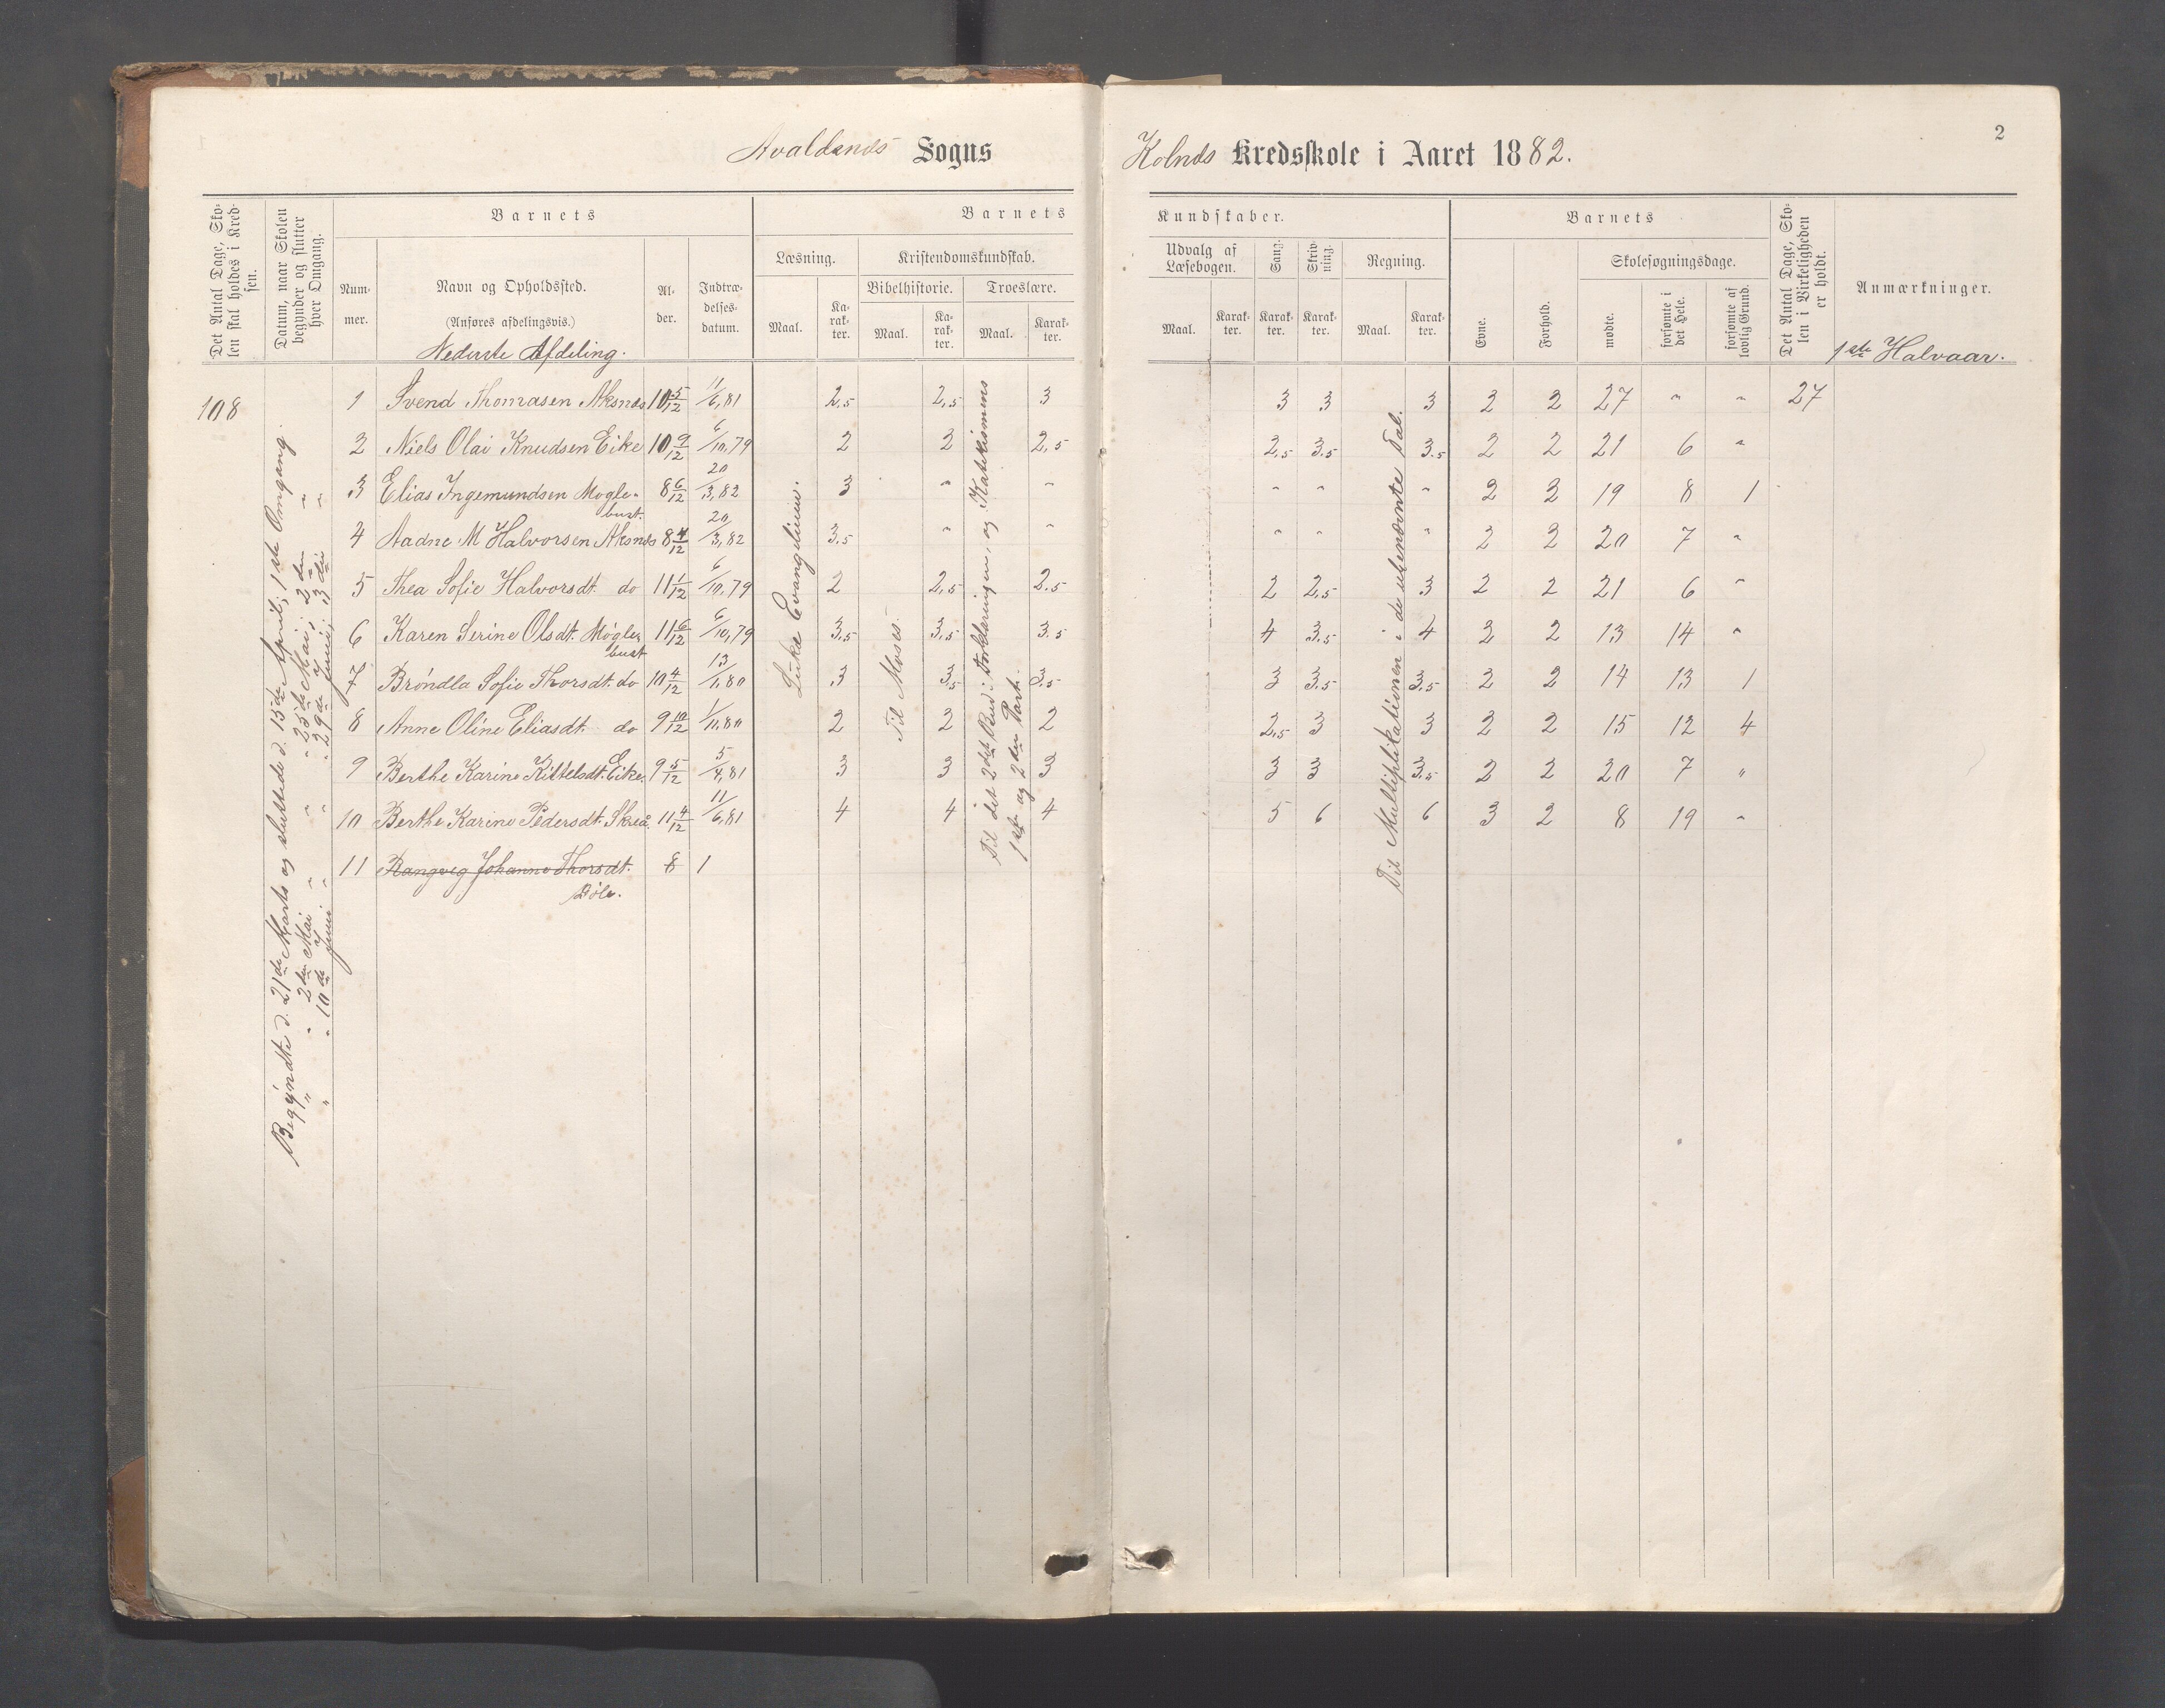 Avaldsnes Sogns
Kolnes Kredsskole i Aaret 1882.
2
Det Antal Dage, Skolen skal holdes i Kredsen.
Datum, naar Skolen begynder og slutter hver Omgang.
Barnets
Nummer.
Navn og Opholdssted.
(Anføres afdelingsvis.)
Nederste Afdeling.
Alder.
Indtrædelsesdatum.
Barnets
Læsning.
Kristendomskundskab.
Bibelhistorie.
Troeslære.
Maal.
Karakter.
Maal.
Karakter.
Maal.
Karakter.
Kundskaber.
Udvalg af Læsebogen.
Sang.
Skrivning.
Regning.
Maal.
Karakter.
Karakter.
Karakter.
Maal.
Karakter.
Barnets
Evne.
Forhold.
Skolesøgningsdage.
mødte.
forsømte i det Hele.
forsømte af lovlig Grund.
Det Antal Dage, Skolen i Virkeligheden er holdt.
Anmærkninger.
1ste Halvaar.
108
Begyndte d. 21de Marts og sluttede d. 13de April; 1ste Omgang.
" " 2den Mai " " " 25de Mai; 2den "
" " 10de Juni " " " 29de Juni; 3die "
Luke Evangelium.
Til Moses.
Til det 2det Bud i Forklaringen, og Katekismens
1ste og 2den Part.
Til Multiplikationen i de ubenævnte Tal.
1 Svend Thomasen Aksnes 10 5/12 11/6,81 2,5 2,5 3 3 3 3 2 2 27 " " 27
2 Niels Olai Knudsen Eike 10 9/12 6/10,79 2 2 2,5 2,5 3,5 3,5 2 2 21 6 "
3 Elias Ingemundsen Møglebust. 8 6/12 20/3,82 3 " " " " " 2 2 19 8 1
4 Aadne M Halvorsen Aksnes 8 4/12 20/3,82 3,5 " " " " " 2 2 20 7 "
5 Thea Sofie Halvorsdt. do 11 1/12 6/10,79 2 2,5 2,5 2 2,5 3 2 2 21 6 "
6 Karen Serine Olsdt. Møglebust 11 6/12 6/10,79 3,5 3,5 3,5 4 3,5 4 2 2 13 14 "
7 Brøndla Sofie Thorsdt. do 10 4/12 13/1,80 3 3,5 3,5 3 3,5 3,5 2 2 14 13 1
8 Anne Oline Eliasdt. do 9 10/12 1/11,80 2 2 2 2,5 3 3 2 2 15 12 4
9 Berthe Karine Kittelsdt. Eike. 9 5/12 5/4,81 3 3 3 3 3 3,5 2 2 20 7 "
10 Berthe Karine Pedersdt. Skreå 11 4/12 11/6,81 4 4 4 5 6 6 3 2 8 19 "
11 Rangveg Johanne Thorsdt. 8 1
Bøle.